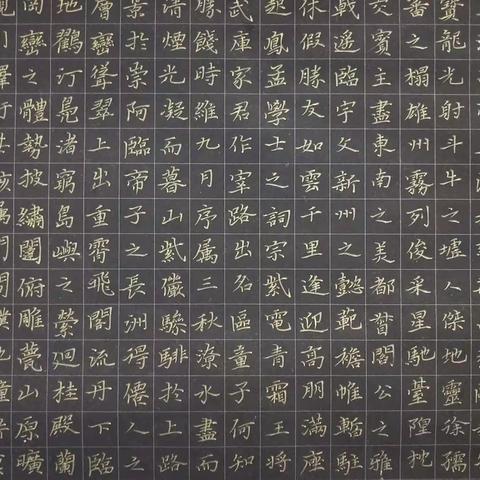 龍光射斗牛之墟人傑地靈徐孺
之榻雄州霧列俊采星馳臺隍枕
交賓主盡東南之美都督閻公之雅
戟遙臨宇文新州之懿範襜帷暫駐
休假勝友如雲千里逢迎高朋滿座
起鳳孟學士之詞宗紫電青霜王將
武庫家君作宰路出名區童子何知
勝餞時維九月序属三秋潦水盡而
清煙光凝而暮山紫儼驂騑於上路
景於崇阿臨帝子之長洲得僊人之
層巒聳翠上出重霄飛閣流丹下臨
鶴汀鳧渚窮島嶼之縈迴桂殿蘭
岡巒之體勢披繡闥俯雕甍山原曠